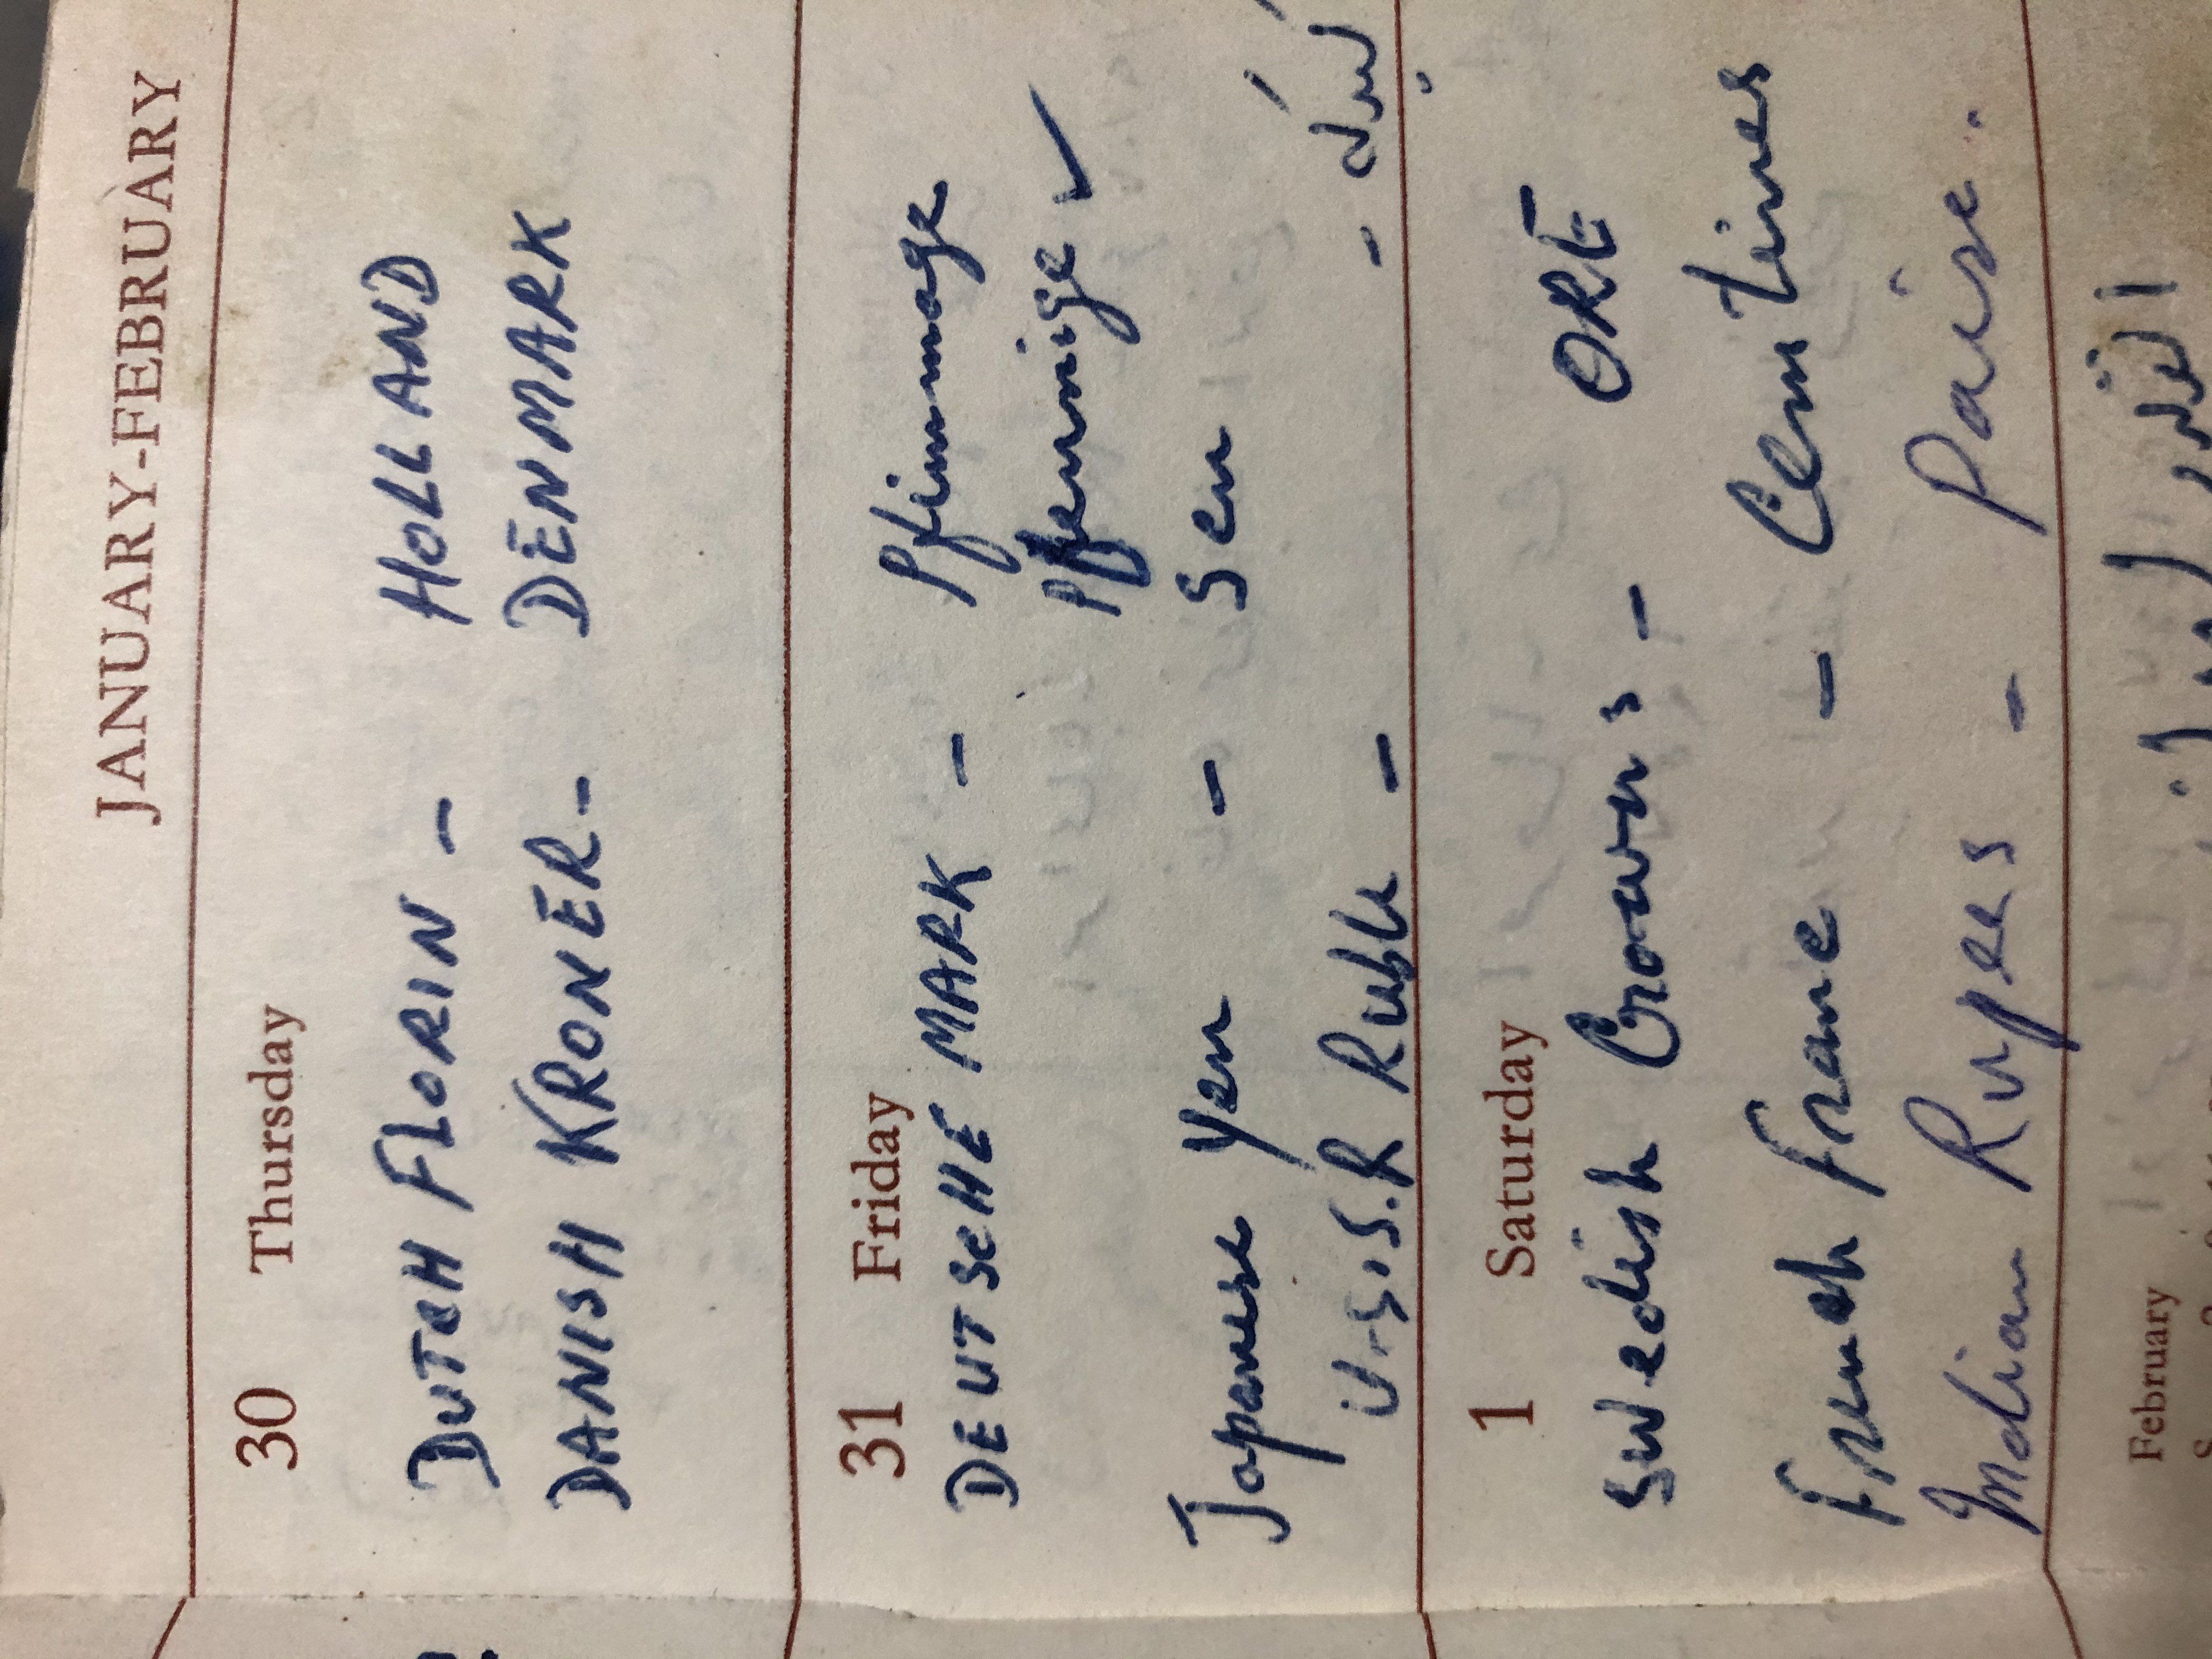 JANUARY-FEBRUARY
30 Thursday
DUTCH FLORIN - HOLLAND
DANISH KRONER - DENMARK
31 Friday
DEUTSCHE MARK - Pfinnage
Pfennige ✓
Japanese Yen - Sen
U.S.S.R Ruble -
1 Saturday
Swedish Crowns - ORE
French Franc - Centimes
Indian Rupees - Paise.
February